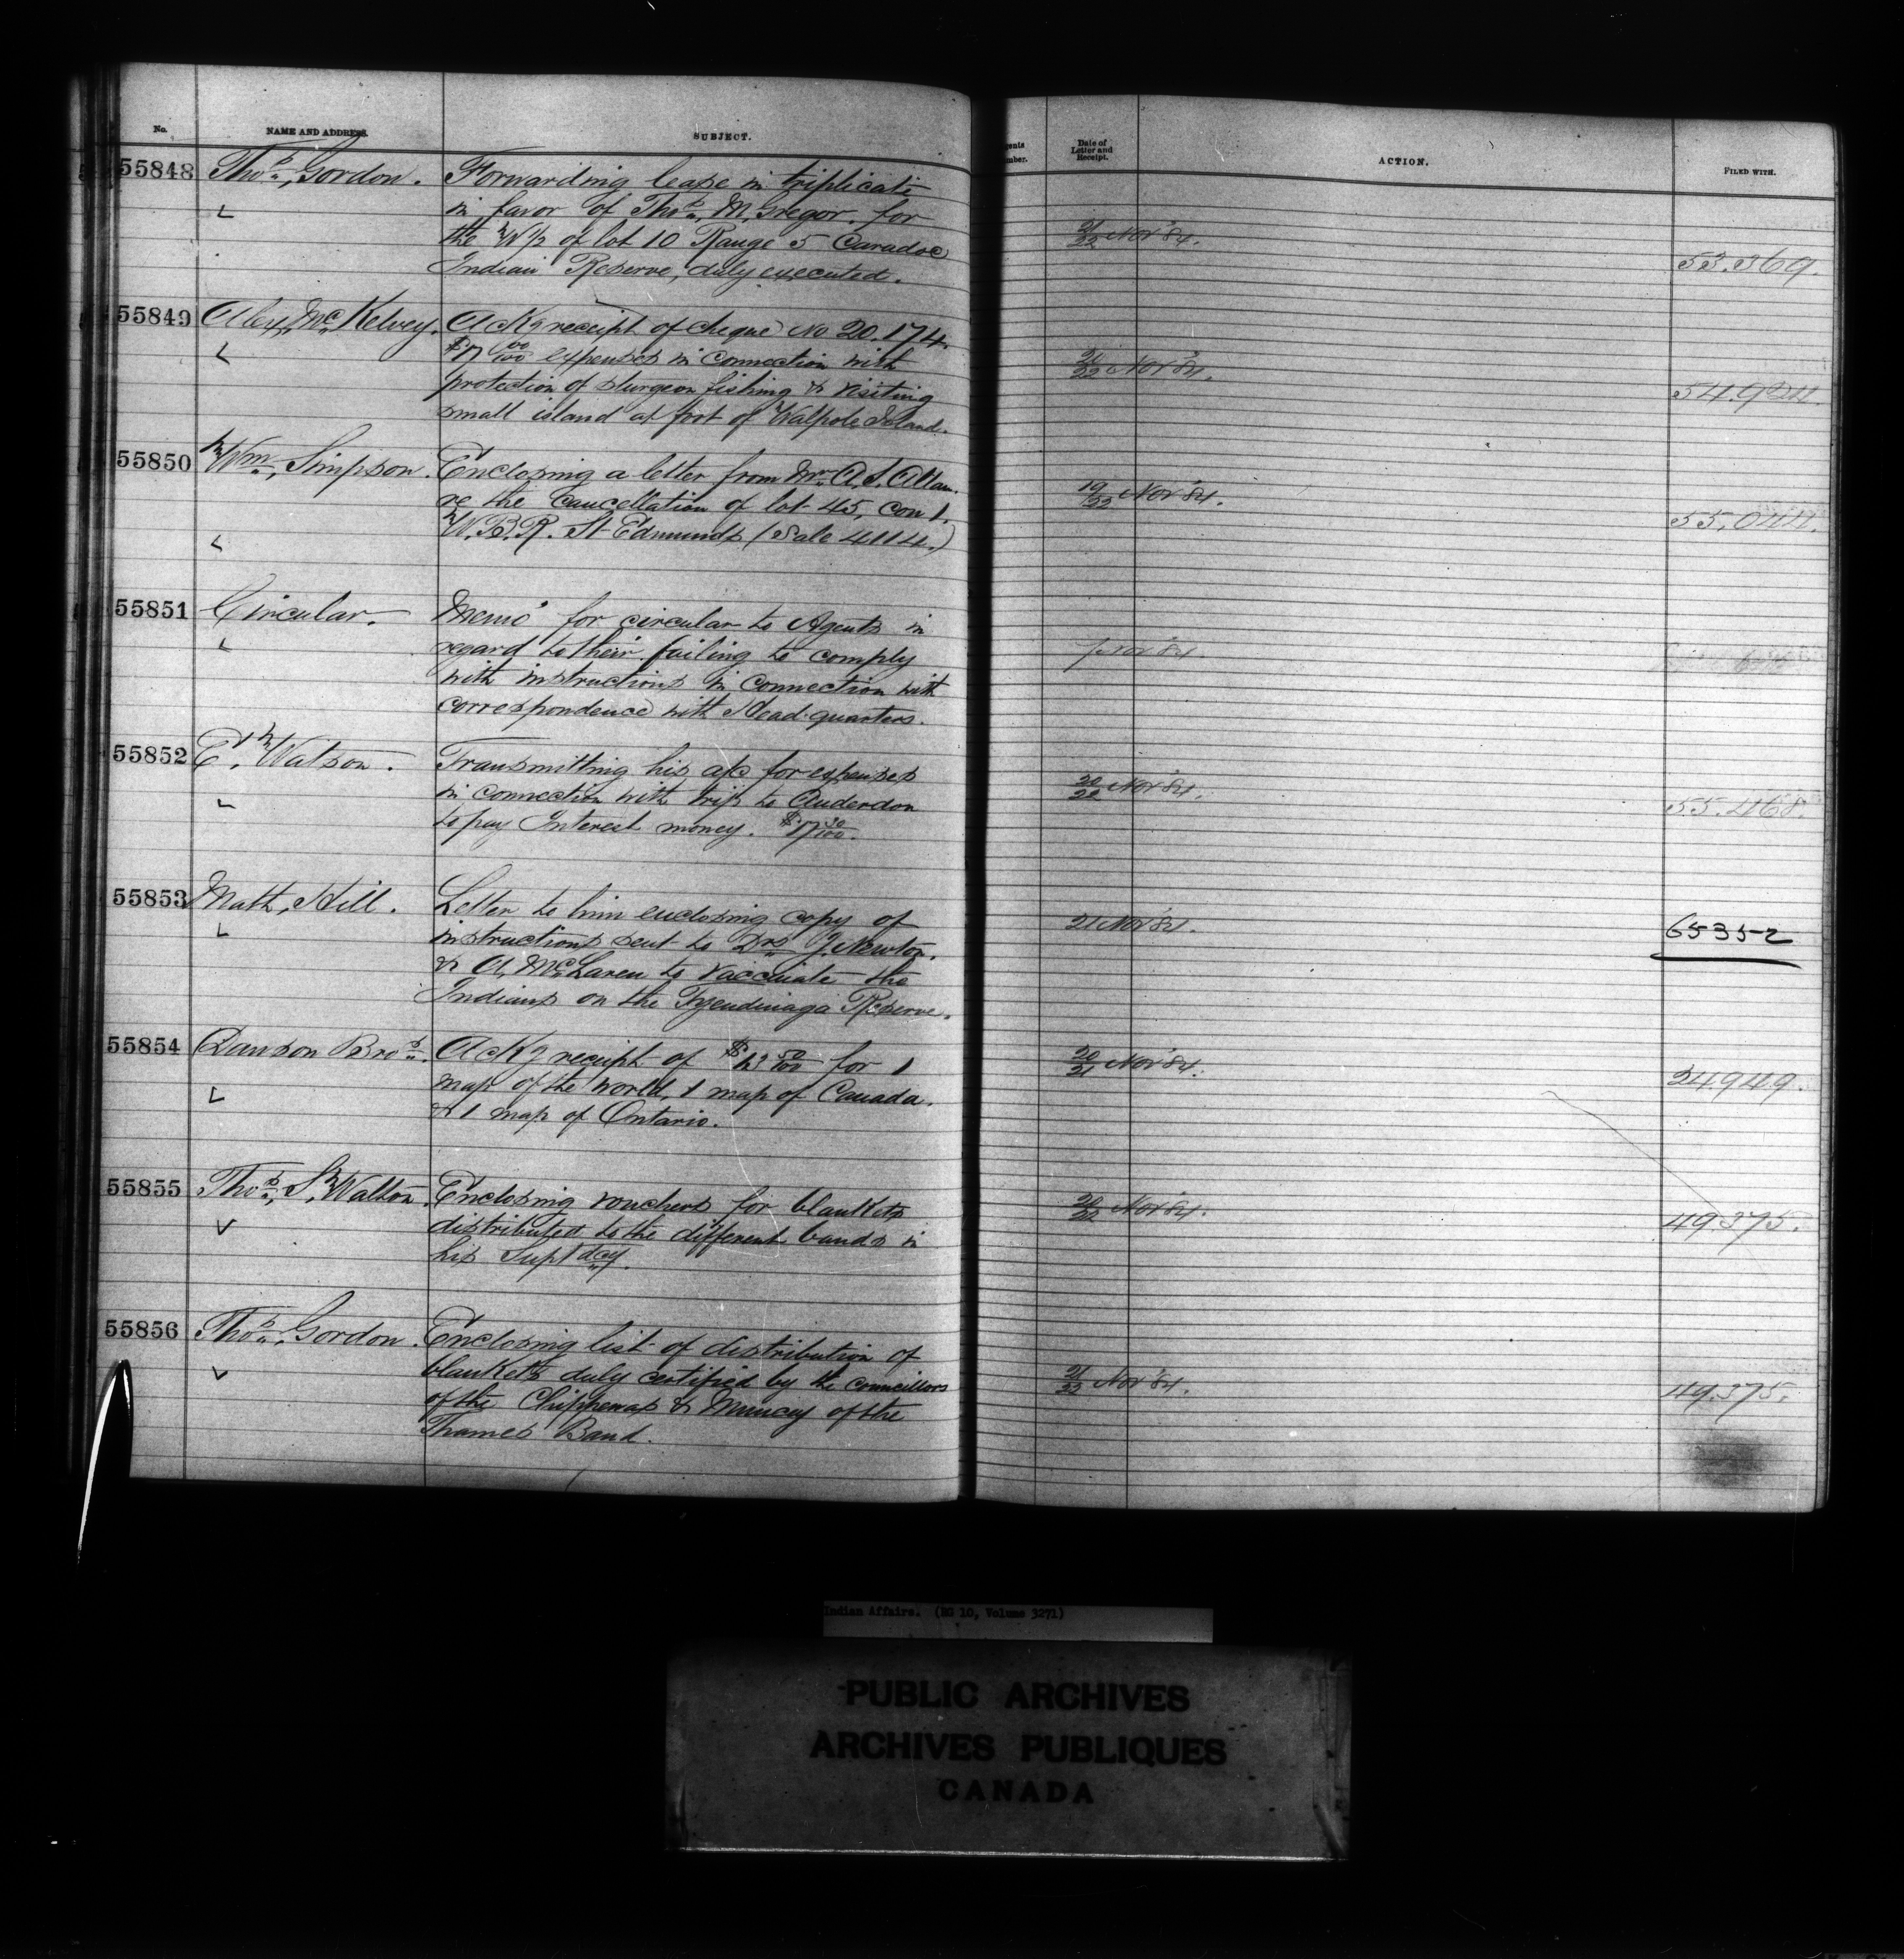 No. NAME AND ADDRESS. SUBJECT.
55848 Thos. Gordon. Forwarding lease in triplicate
in favor of Thos. McGregor for
the W½ of lot 10 Range 5 Caradoc
Indian Reserve, duly executed.
55849 Alex. McKelvey. Ackg receipt of cheque No 20.174.
$17 00/100 expenses in connection with
protection of sturgeon fishing & visiting
small island at foot of Walpole Island.
55850 Wm. Simpson. Enclosing a letter from Mr. A. S. Allan.
re the cancellation of lot 45, con 1.
W.B.R. St Edmunds (Sale 4114.)
55851 Circular. Memo' for circular to Agents in
regard to their failing to comply
with instructions in connection with
correspondence with Head-quarters.
55852 E. Watson. Transmitting his a/c for expenses
in connection with trip to Anderdon
to pay Interest money. $17 30/100.
55853 Math. Hill. Letter to him enclosing copy of
instructions sent to Drs. J. Newton.
& A. McLaren to vaccinate the
Indians on the Tyendinaga Reserve.
55854 Dawson Bros. Ackg receipt of $13 50/100 for 1
map of the world, 1 map of Canada.
& 1 map of Ontario.
55855 Thos. S. Walton. Enclosing vouchers for blankets
distributed to the different bands in
his Suptdcy.
55856 Thos. Gordon. Enclosing list of distribution of
blankets duly certified by the councillors
of the Chippewas & Muncey of the
Thames Band.
Date of
Letter and
Receipt.
ACTION. FILED WITH.
21/22 Nov '84.
53.369.
20/22 Nov '84.
54.924.
19/22 Nov '84.
55.044.
Nov '84
20/22 Nov '84.
55.468.
21 Nov '84.
65352
20/21 Nov '84.
34949.
20/22 Nov '84.
49.375.
21/22 Nov '84.
49.375.
Indian Affairs. (RG 10, Volume 3271)
PUBLIC ARCHIVES
ARCHIVES PUBLIQUES
CANADA